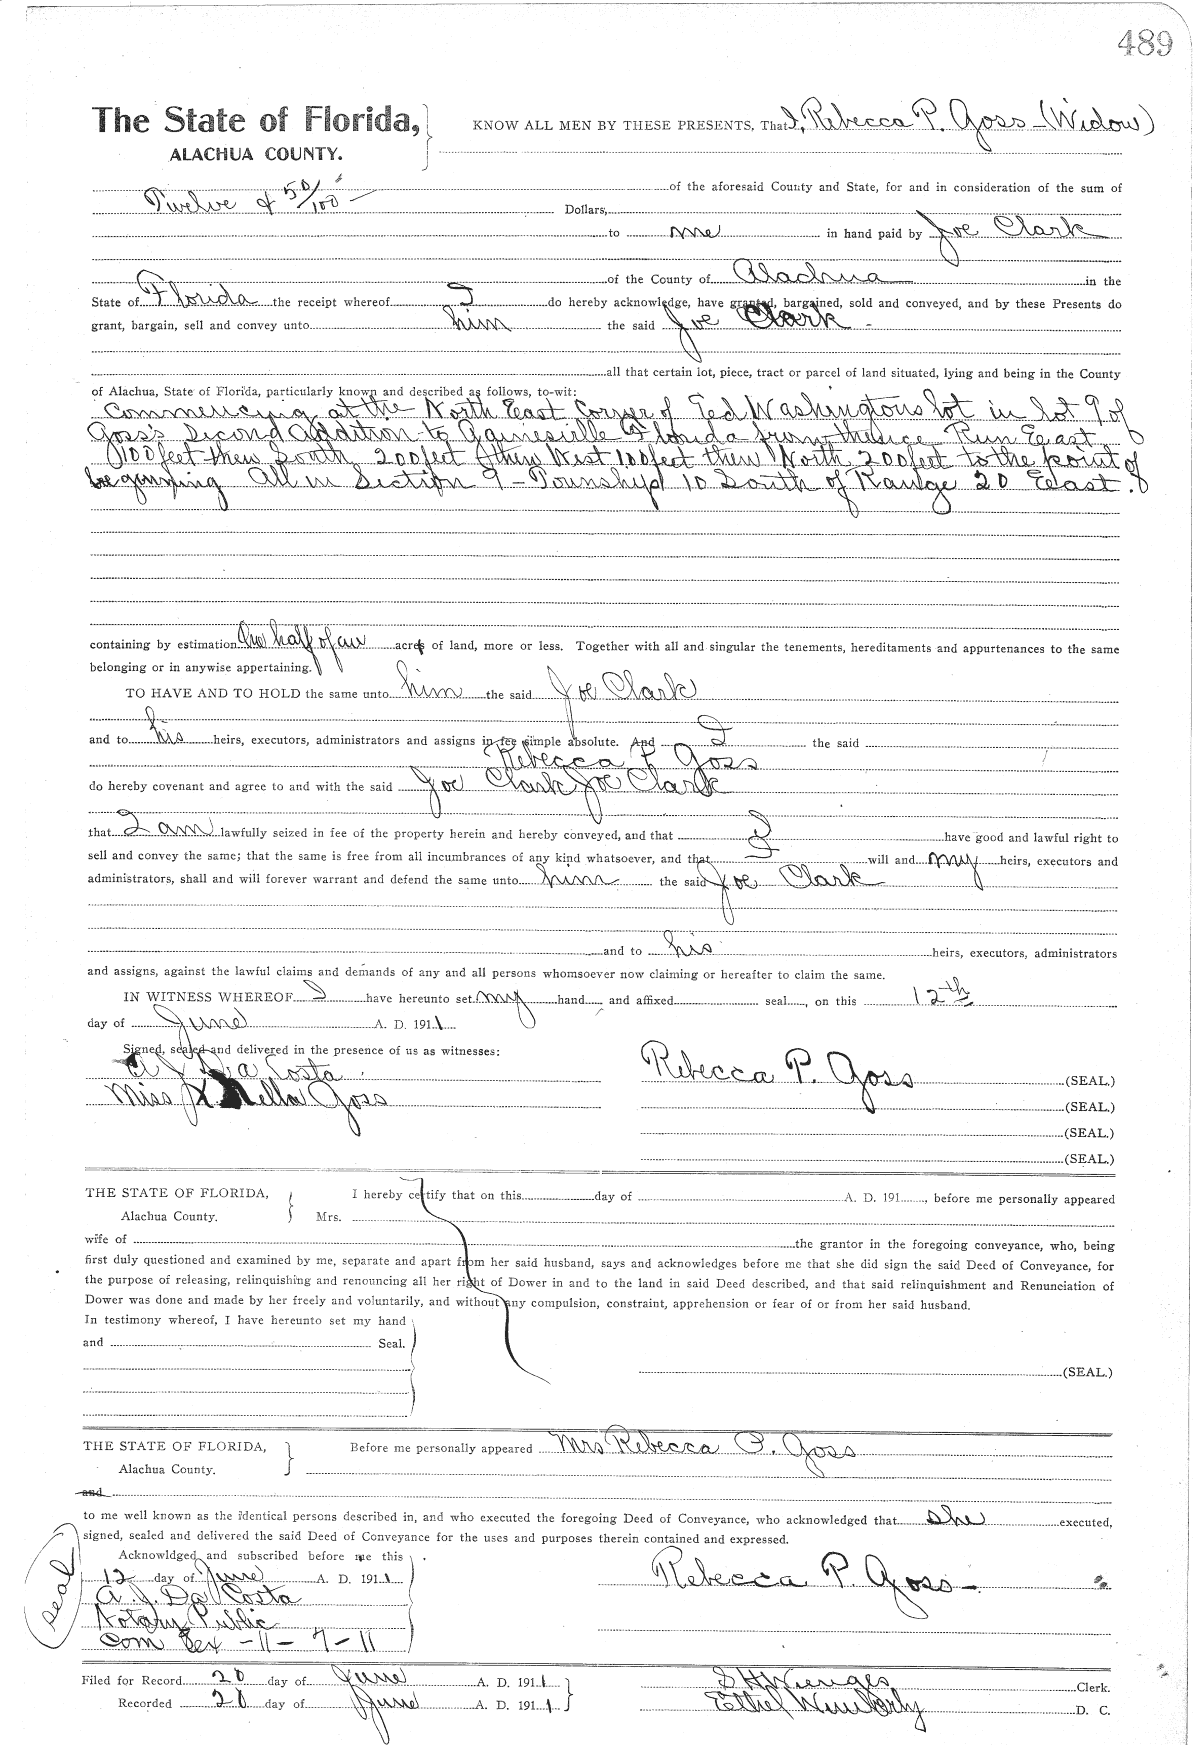 489
The State of Florida,
ALACHUA COUNTY.
KNOW ALL MEN BY THESE PRESENTS, That I, Rebecca P. Goss (Widow)
of the aforesaid County and State, for and in consideration of the sum of
Twelve & 50/100 Dollars,
to me in hand paid by Joe Clark
of the County of Alachua in the
State of Florida the receipt whereof I do hereby acknowledge, have granted, bargained, sold and conveyed, and by these Presents do
grant, bargain, sell and convey unto him the said Joe Clark
all that certain lot, piece, tract or parcel of land situated, lying and being in the County
of Alachua, State of Florida, particularly known and described as follows, to-wit:
Commencing at the North East Corner of Ted Washingtons lot in lot 9 of
Goss's Second Addition to Gainesville Florida from thence Run East
100 feet then South 200 feet then West 100 feet then North 200 feet to the point of
beginning All in Section 9 - Township 10 South of Range 20 East.
containing by estimation One half of an acre of land, more or less. Together with all and singular the tenements, hereditaments and appurtenances to the same
belonging or in anywise appertaining.
TO HAVE AND TO HOLD the same unto him the said Joe Clark
and to his heirs, executors, administrators and assigns in fee simple absolute. And I the said
Rebecca P Goss
do hereby covenant and agree to and with the said Joe Clark Joe Clark
that I am lawfully seized in fee of the property herein and hereby conveyed, and that I have good and lawful right to
sell and convey the same; that the same is free from all incumbrances of any kind whatsoever, and that I will and my heirs, executors and
administrators, shall and will forever warrant and defend the same unto him the said Joe Clark
and to his heirs, executors, administrators
and assigns, against the lawful claims and demands of any and all persons whomsoever now claiming or hereafter to claim the same.
IN WITNESS WHEREOF I have hereunto set my hand and affixed seal, on this 12th
day of June A. D. 1911.
Signed, sealed and delivered in the presence of us as witnesses:
A J Da Costa
Rebecca P. Goss (SEAL.)
Miss Nella Goss
(SEAL.)
(SEAL.)
(SEAL.)
THE STATE OF FLORIDA,
Alachua County.
I hereby certify that on this day of A. D. 191 , before me personally appeared
Mrs.
wife of the grantor in the foregoing conveyance, who, being
first duly questioned and examined by me, separate and apart from her said husband, says and acknowledges before me that she did sign the said Deed of Conveyance, for
the purpose of releasing, relinquishing and renouncing all her right of Dower in and to the land in said Deed described, and that said relinquishment and Renunciation of
Dower was done and made by her freely and voluntarily, and without any compulsion, constraint, apprehension or fear of or from her said husband.
In testimony whereof, I have hereunto set my hand
and Seal.
(SEAL.)
THE STATE OF FLORIDA,
Alachua County.
Before me personally appeared Mrs Rebecca P. Goss
and
to me well known as the identical persons described in, and who executed the foregoing Deed of Conveyance, who acknowledged that she executed,
signed, sealed and delivered the said Deed of Conveyance for the uses and purposes therein contained and expressed.
Acknowldged and subscribed before me this
12 day of June A. D. 1911.
Rebecca P Goss
seal
A. J. Da Costa
Notary Public
Com Ex - 11 - 7 - 11
Filed for Record 20 day of June A. D. 1911
S H Wienges Clerk.
Recorded 20 day of June A. D. 1911.
Ethel Wimberly D. C.